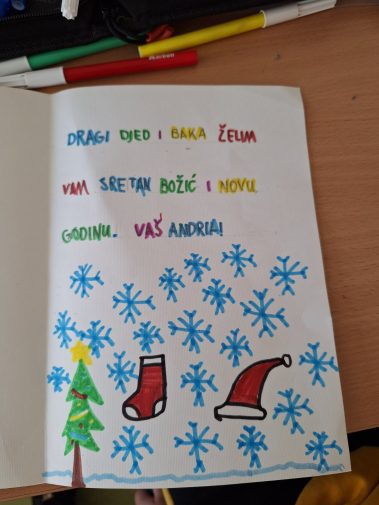 DRAGI DJED I BAKA ŽELIM
VAM SRETAN BOŽIĆ I NOVU
GODINU. VAŠ ANDRIJA!